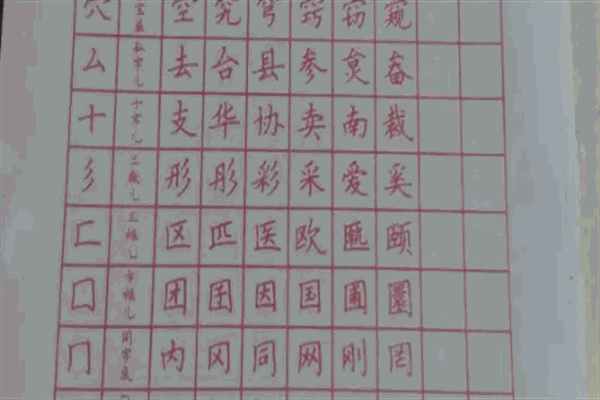 穴 宝盖 空 究 穹 窍 窃 窥
厶 私字儿 去 台 县 参 畚
十 十字儿 支 华 协 卖 南 裁
彡 三撇儿 形 彤 彩 采 爱 奚
匚 三框儿 区 匹 医 欧 匭 颐
囗 方框儿 团 囯 因 国 圃 圆
冂 同字匡 内 冈 同 网 刚 罔